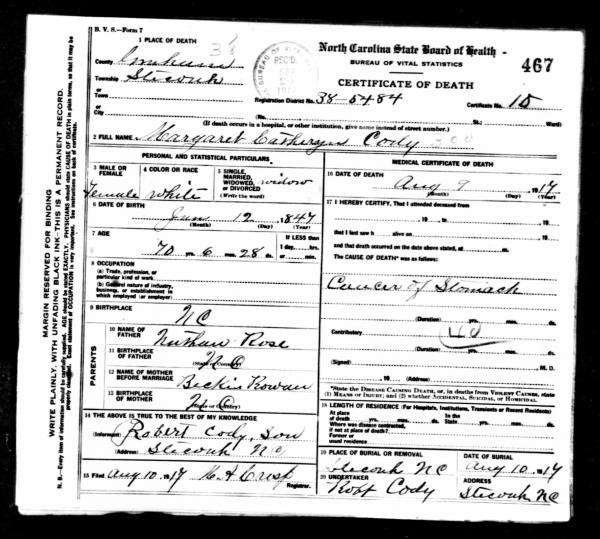 B. V. S.—Form 7
1 PLACE OF DEATH
38
North Carolina State Board of Health
BUREAU OF VITAL STATISTICS
467
BUREAU OF VITAL
REC'D
County Graham
CERTIFICATE OF DEATH
Township Stecoah
or
Town
Registration District No. 38-5484 Certificate No. 15
or
City (No. St.; Ward)
(If death occurs in a hospital, or other institution, give name instead of street number.)
2 FULL NAME Margaret Catheryn Cody
PERSONAL AND STATISTICAL PARTICULARS
3 MALE OR FEMALE
Female
4 COLOR OR RACE
white
5 SINGLE, MARRIED, WIDOWED, OR DIVORCED
(Write the word)
widow
6 DATE OF BIRTH
Jan 12 1847
(Month) (Day) (Year)
7 AGE
70 yrs. 6 mos. 28 ds.
If LESS than
1 day, hrs.
or min.
8 OCCUPATION
(a) Trade, profession, or
particular kind of work
(b) General nature of industry,
business, or establishment in
which employed (or employer)
9 BIRTHPLACE
NC
PARENTS
10 NAME OF FATHER
Nathan Rose
11 BIRTHPLACE OF FATHER
(State or Country)
NC
12 NAME OF MOTHER BEFORE MARRIAGE
Beckie Rowan
13 BIRTHPLACE OF MOTHER
(State or Country)
NC
14 THE ABOVE IS TRUE TO THE BEST OF MY KNOWLEDGE
(Informant) Robert Cody, Son
(Address) Stecoah NC
15 Filed Aug 10 1917
Crisp
Registrar.
MEDICAL CERTIFICATE OF DEATH
16 DATE OF DEATH
Aug 9 1917
(Month) (Day) (Year)
17 I HEREBY CERTIFY, That I attended deceased from
, 19 , to , 19
that I last saw h alive on , 19
and that death occurred on the date above stated, at m.
The CAUSE OF DEATH* was as follows:
Cancer of Stomach
(Duration) yrs. mos. ds.
Contributory 40
(Duration) yrs. mos. ds.
(Signed) M. D.
, 19 (Address)
*State the DISEASE CAUSING DEATH, or, in deaths from VIOLENT CAUSES, state
(1) MEANS OF INJURY; and (2) whether ACCIDENTAL, SUICIDAL, or HOMICIDAL.
18 LENGTH OF RESIDENCE (For Hospitals, Institutions, Transients or Recent Residents)
At place of death yrs. mos. ds. In the State yrs. mos. ds.
Where was disease contracted,
if not at place of death?
Former or
usual residence
19 PLACE OF BURIAL OR REMOVAL
Stecoah NC
DATE OF BURIAL
Aug 10 1917
20 UNDERTAKER
Robt Cody
ADDRESS
Stecoah NC
MARGIN RESERVED FOR BINDING
WRITE PLAINLY, WITH UNFADING BLACK INK—THIS IS A PERMANENT RECORD.
N. B.—Every item of information should be carefully supplied. AGE should be stated EXACTLY. PHYSICIANS should state CAUSE OF DEATH in plain terms, so that it may be
properly classified. Exact statement of OCCUPATION is very important. See instructions on back of certificate.